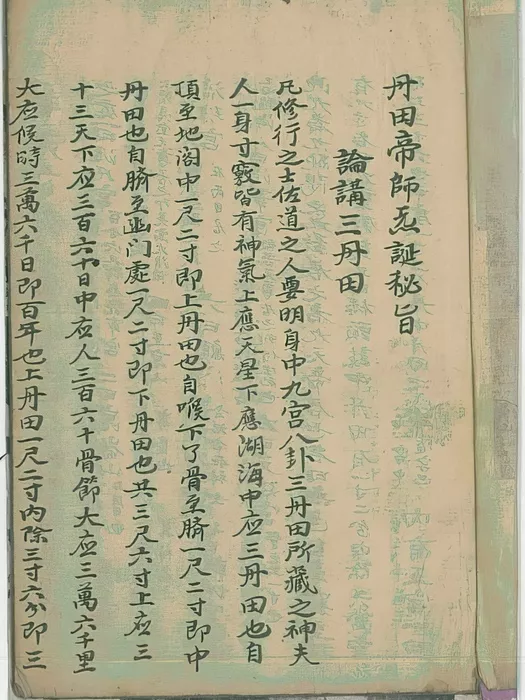 丹田帝師无誕秘旨
論講三丹田
凡修行之士佐道之人要明身中九宫八卦三丹田所藏之神夫
人一身寸竅皆有神氣上應天星下應湖海中应三丹田也自
頂至地阁中一尺二寸即上丹田也自喉下了骨至臍一尺二寸即中
丹田也自臍至幽门處一尺二寸即下丹田也共三尺六寸上应三
十三天下应三百六十日中应人三百六十骨節大应三萬六千里
大应候時三萬六千日即百年也上丹田一尺二寸内除三寸六分即三